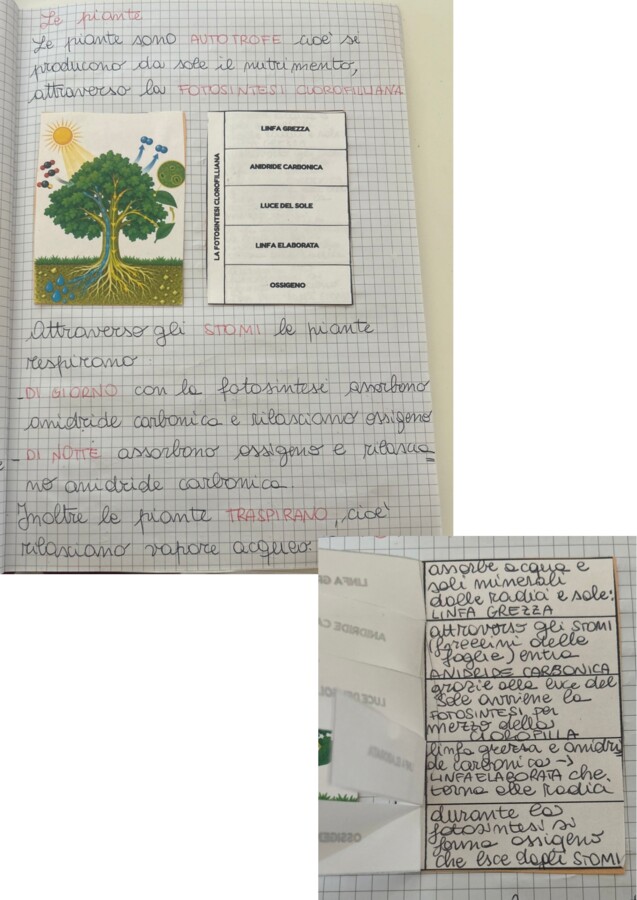 Le piante
Le piante sono AUTOTROFE cioè se
producono da sole il nutrimento,
attraverso la FOTOSINTESI CLOROFILLIANA
LA FOTOSINTESI CLOROFILLIANA
LINFA GREZZA
ANIDRIDE CARBONICA
LUCE DEL SOLE
LINFA ELABORATA
OSSIGENO
Attraverso gli STOMI le piante
respirano
DI GIORNO con la fotosintesi assorbono
anidride carbonica e rilasciano ossigeno
- DI NOTTE assorbono ossigeno e rilascia
no anidride carbonica
Inoltre le piante TRASPIRANO, cioè
rilasciano vapore acqueo.
assorbe acqua e
sali minerali
dalle radici e sale:
LINFA GREZZA
attraverso gli STOMI
(forellini delle
foglie) entra
ANIDRIDE CARBONICA
grazie alla luce del
sole avviene la
FOTOSINTESI per
mezzo della
CLOROFILLA
linfa grezza e anidri
de carbonica →
LINFA ELABORATA che
torna alle radici
durante la
fotosintesi si
forma ossigeno
che esce dagli STOMI